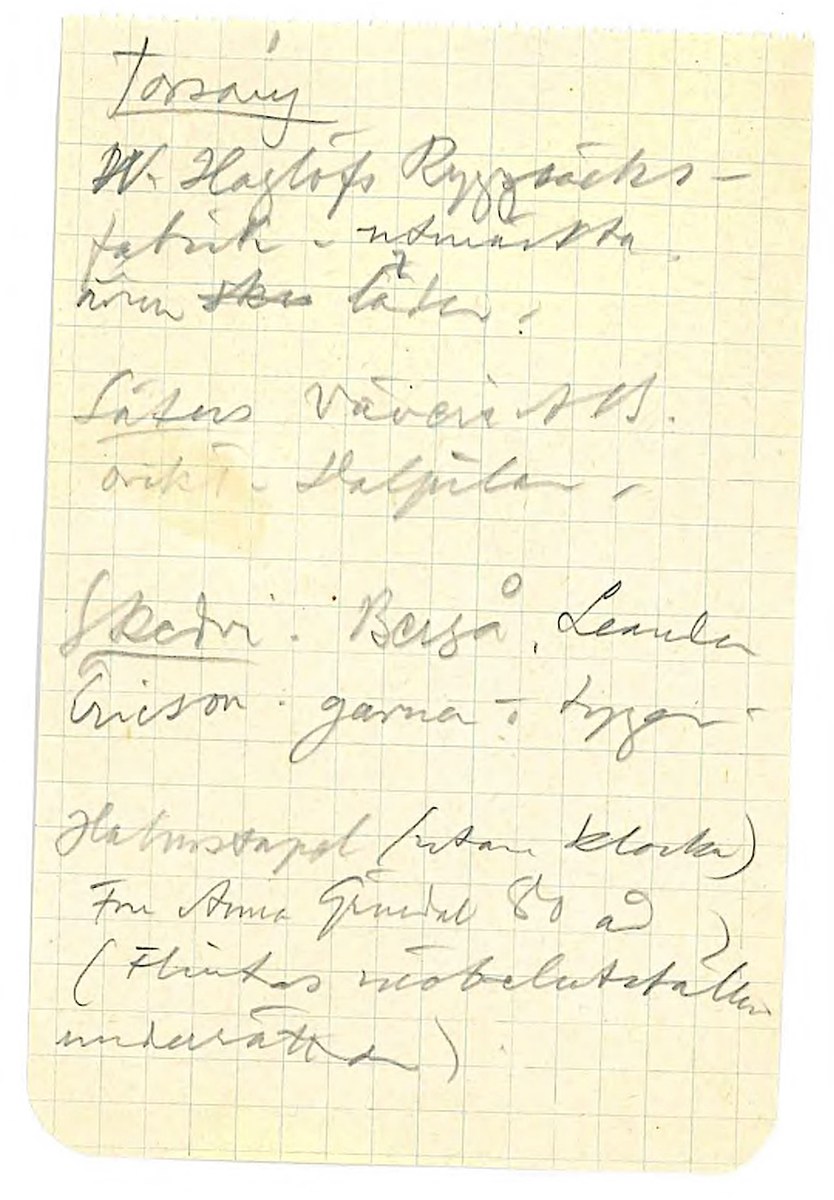 Torsång
W. Haglöfs Ryggsäcks-
fabrik - utmärkta
läder.
Säters Väveri AB.
Skedvi. Bergå, Leander
Ericson. garner - tyger -
Halmstapel (utan klocka)
Fru Anna 80 år
(Flintas möbelutställn
underrättar)